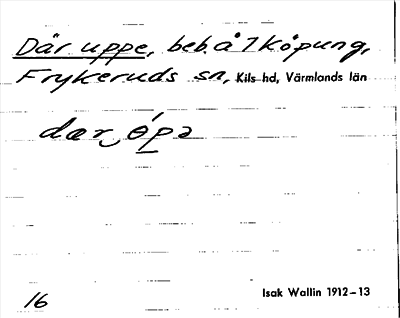 Där uppe, beb. å 1 Köpung,
Frykeruds sn, Kils hd, Värmlands län
dær ɵ́pə
16
Isak Wallin 1912–13